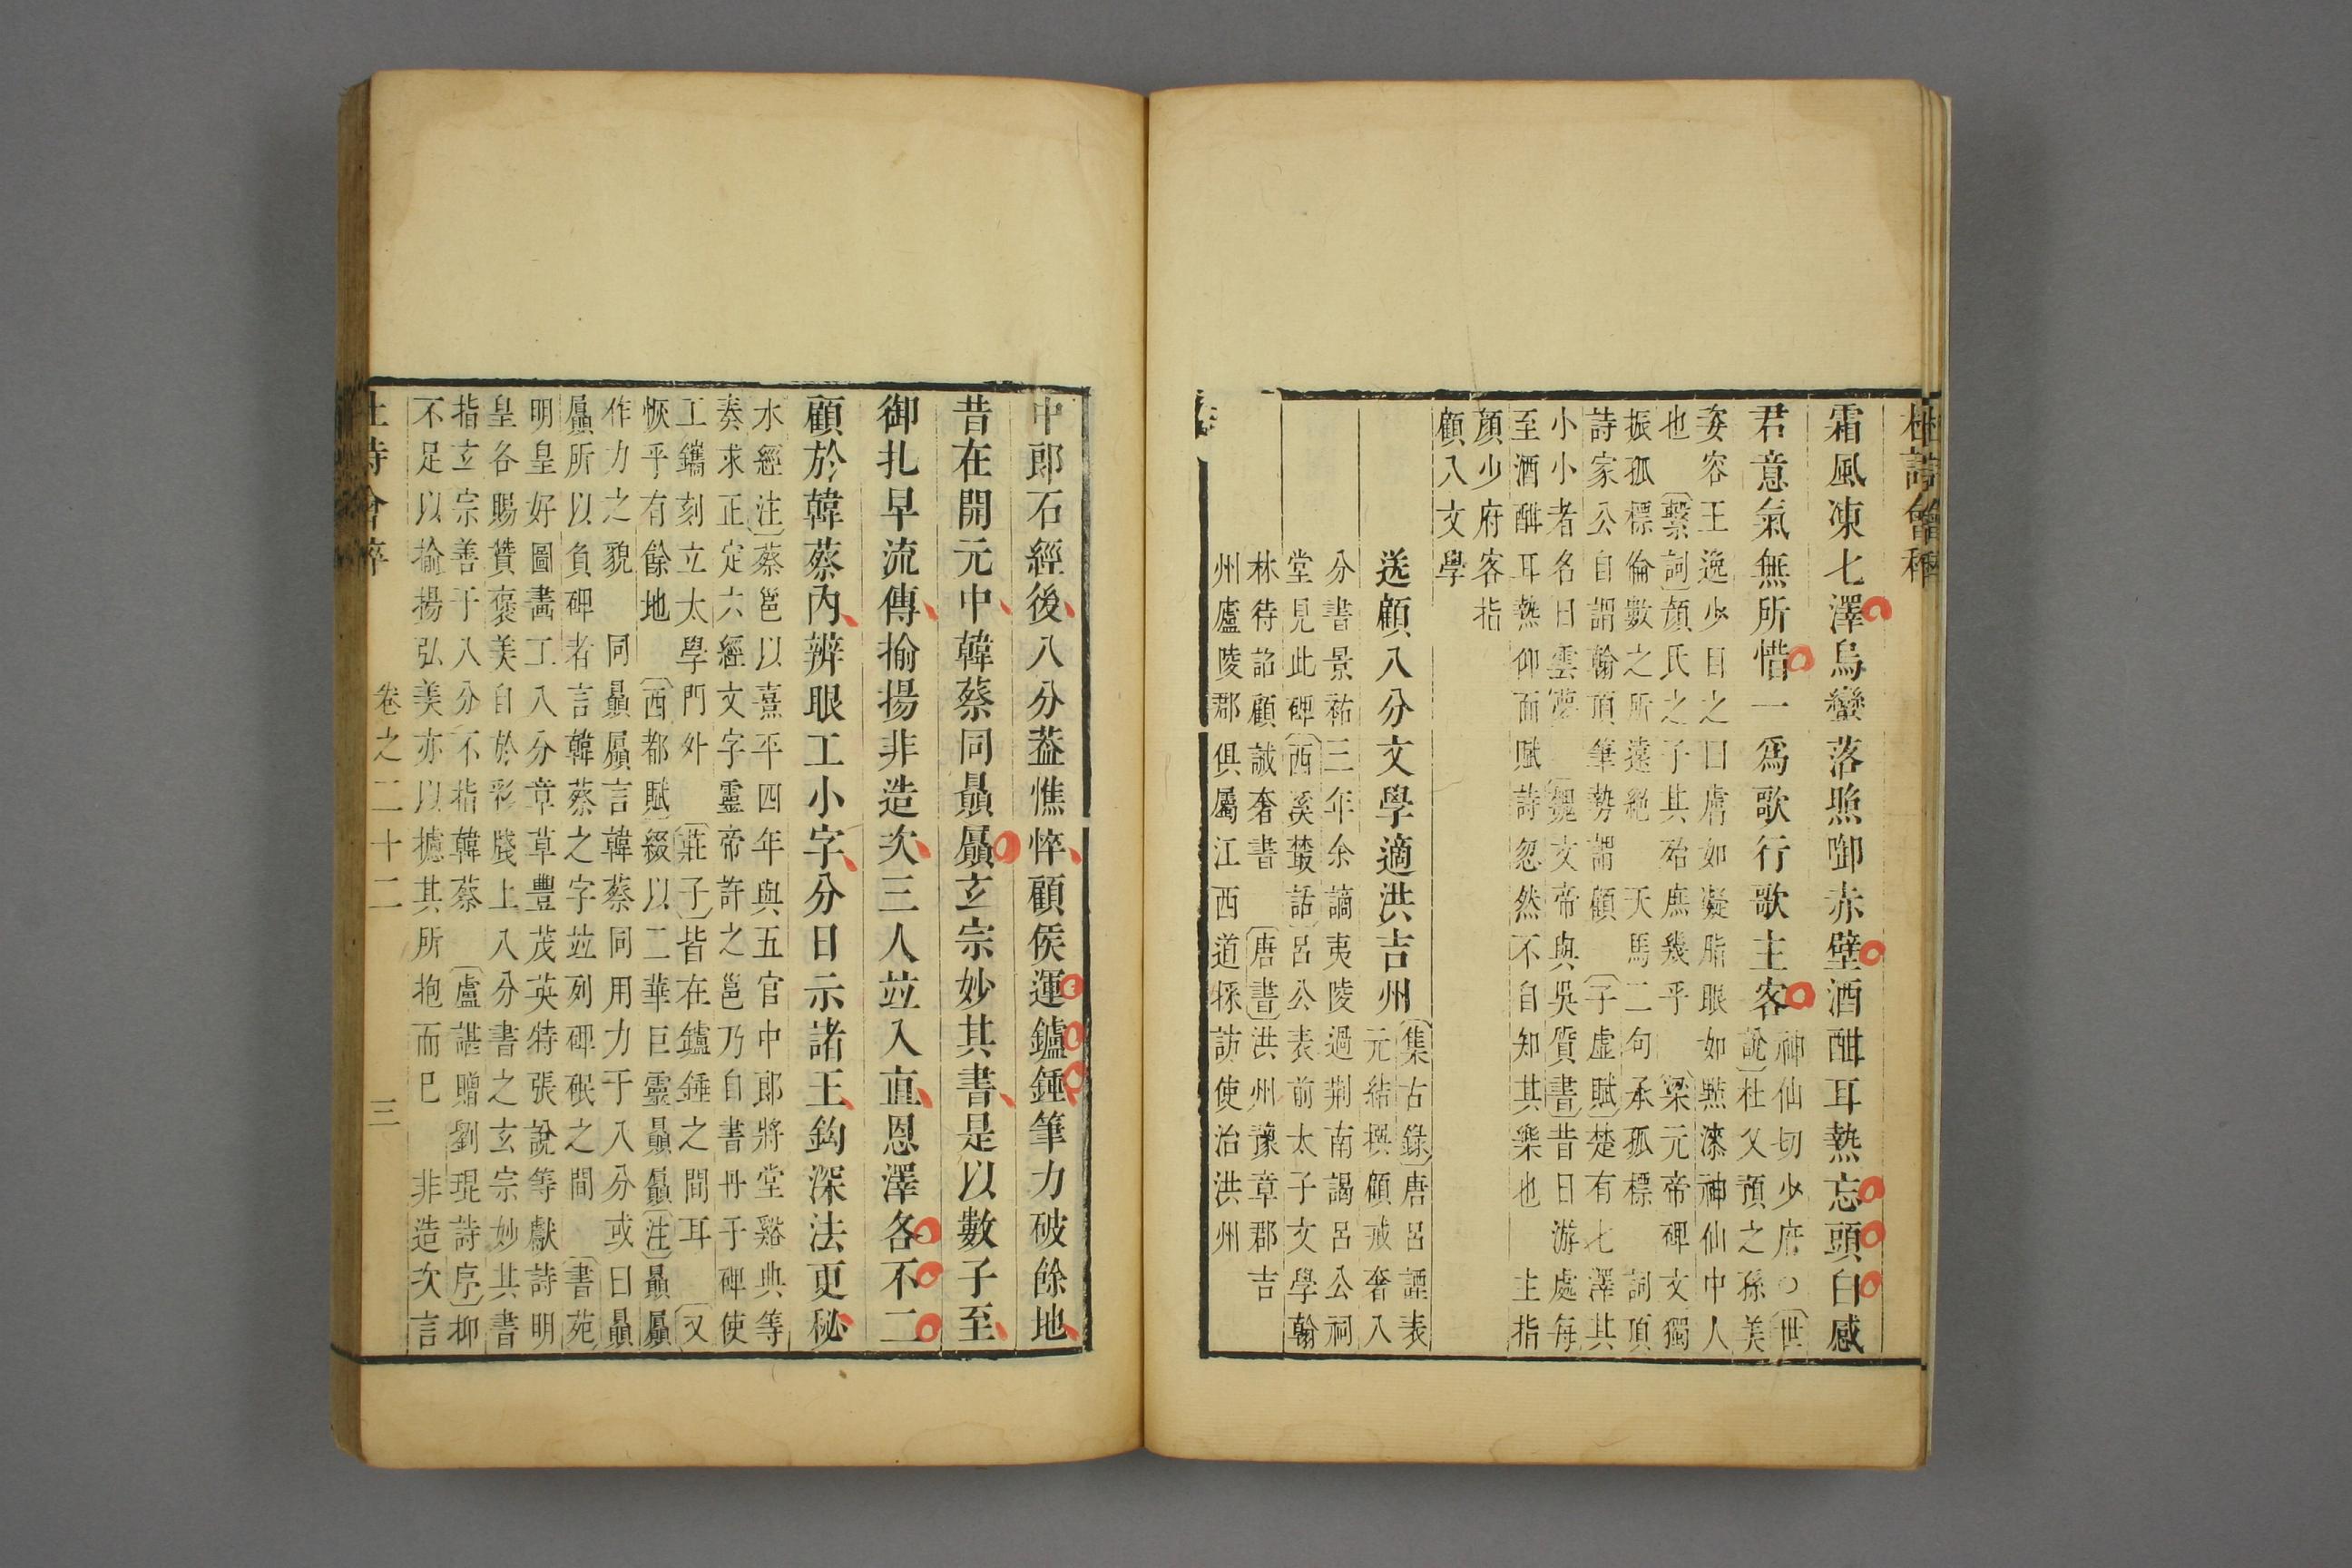 杜詩會粹
霜風凍七澤烏蠻落照啣赤壁酒酣耳熱忘頭白感
君意氣無所惜一爲歌行歌主客
神仙切少府〇世
說杜乂預之孫美
姿容王逸少目之曰膚如凝脂眼如點漆神仙中人
也　繫詞顏氏之子其殆庶幾乎　梁元帝碑文獨
振孤標倫數之所遠絕　天馬二句承孤標　詞頂
詩家公自謂翰頂筆勢謂顧　子虛賦楚有七澤其
小小者名曰雲夢　魏文帝與吳質書昔日游處每
至酒酣耳熱仰而賦詩忽然不自知其樂也　主指
顏少府客指
顧八文學
送顧八分文學適洪吉州
集古錄唐呂諲表
元結撰顧戒奢八
分書景祐三年余謫夷陵過荆南謁呂公祠
堂見此碑　西溪叢話呂公表前太子文學翰
林待詔顧誡奢書　唐書洪州豫章郡吉
州廬陵郡俱屬江西道採訪使治洪州
中郎石經後八分蓋憔悴顧侯運鑪錘筆力破餘地
昔在開元中韓蔡同贔屭玄宗妙其書是以數子至
御札早流傳揄揚非造次三人竝入直恩澤各不二
顧於韓蔡內辨眼工小字分日示諸王鈎深法更秘
水經注蔡邕以熹平四年與五官中郎將堂谿典等
奏求正定六經文字靈帝許之邕乃自書丹于碑使
工鐫刻立太學門外　莊子皆在鑪錘之間耳　又
恢乎有餘地　西都賦綴以二華巨靈贔屭注贔屭
作力之貌　同贔屭言韓蔡同用力于八分或曰贔
屭所以負碑者言韓蔡之字竝列碑砇之間　書苑
明皇好圖畫工八分章草豐茂英特張說等獻詩明
皇各賜贊褒美自於彩牋上八分書之玄宗妙其書
指玄宗善于八分不指韓蔡　盧諶贈劉琨詩序抑
不足以揄揚弘美亦以攄其所抱而已　非造次言
杜詩會粹　卷之二十二　三